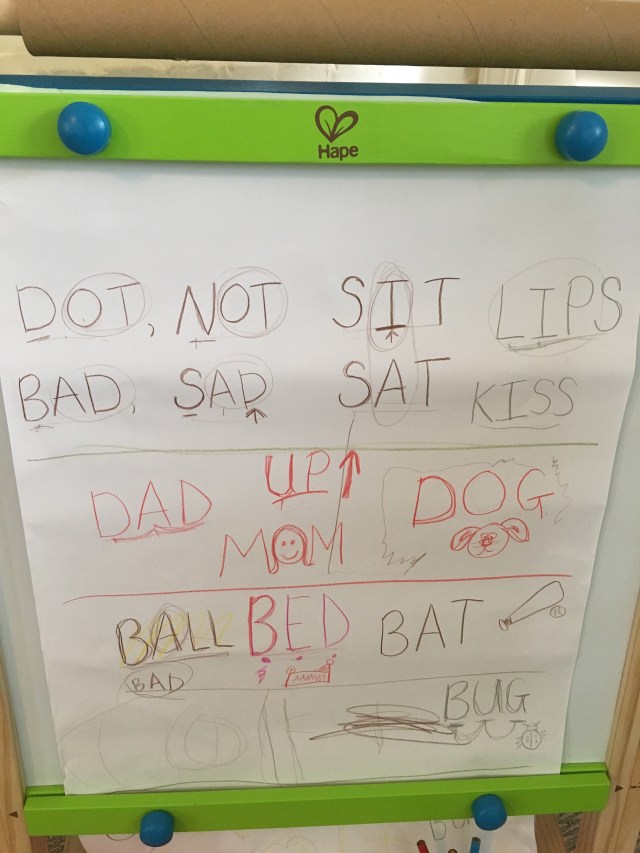 Hape
DOT, NOT SIT LIPS
BAD, SAD SAT KISS
DAD UP DOG
MOM
BALL BED BAT
BAD
BUG